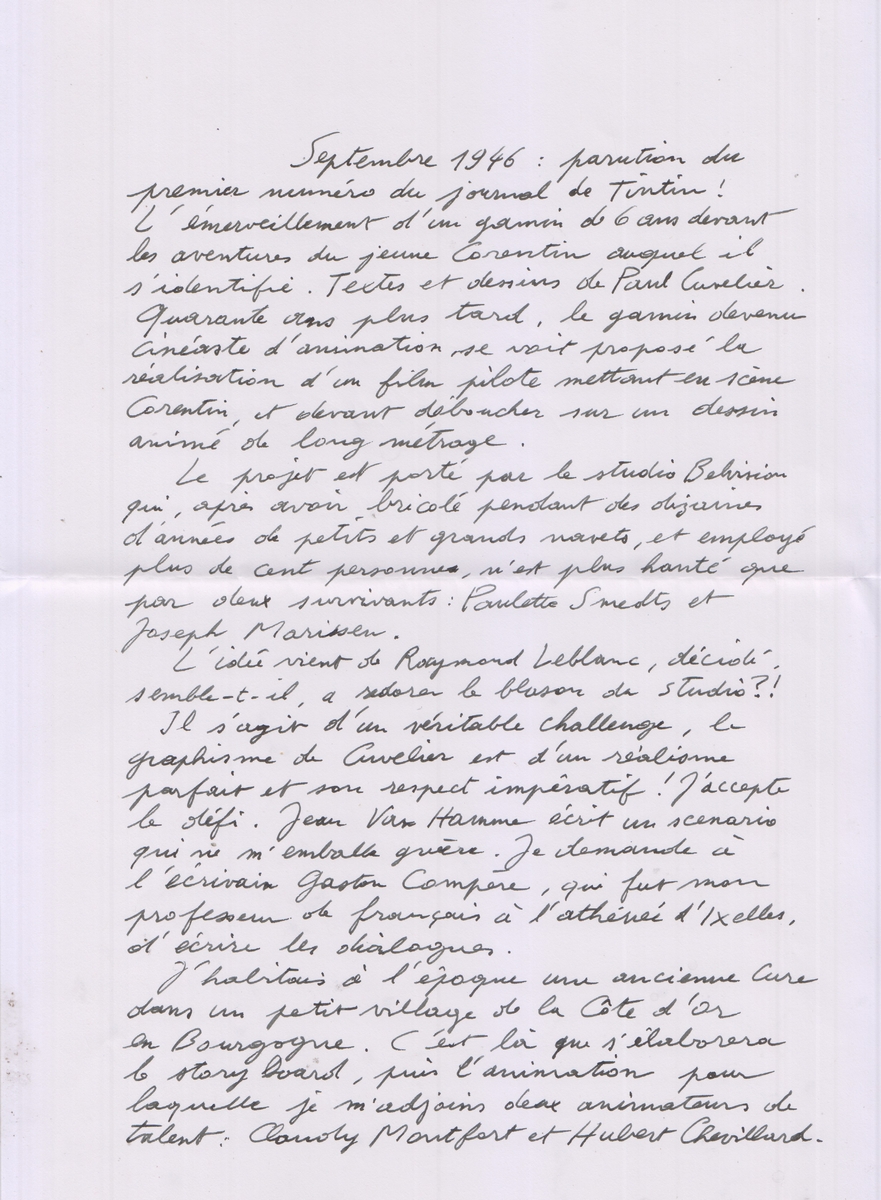 Septembre 1946 : parution du
premier numéro du journal de Tintin !
L'émerveillement d'un gamin de 6 ans devant
les aventures du jeune Corentin auquel il
s'identifie. Textes et dessins de Paul Cuvelier.
Quarante ans plus tard, le gamin devenu
cinéaste d'animation, se voit proposé la
réalisation d'un film pilote mettant en scène
Corentin, et devant déboucher sur un dessin
animé de long métrage.
Le projet est porté par le studio Belvision
qui, après avoir bricolé pendant des dizaines
d'années de petits et grands navets, et employé
plus de cent personnes, n'est plus hanté que
par deux survivants : Paulette Smedts et
Joseph Marissen.
L'idée vient de Raymond Leblanc, décidé,
semble-t-il, a redorer le blason du studio ?!
Il s'agit d'un véritable challenge, le
graphisme de Cuvelier est d'un réalisme
parfait et son respect impératif ! J'accepte
le défi. Jean Van Hamme écrit un scenario
qui ne m'emballe guère. Je demande à
l'écrivain Gaston Compère, qui fut mon
professeur de français à l'athénée d'Ixelles,
d'écrire les dialogues.
J'habitais à l'époque une ancienne Cure
dans un petit village de la Côte d'Or
en Bourgogne. C'est là que s'élaborera
le story board, puis l'animation pour
laquelle je m'adjoins deux animateurs de
talent : Claudy Montfort et Hubert Chevillard.